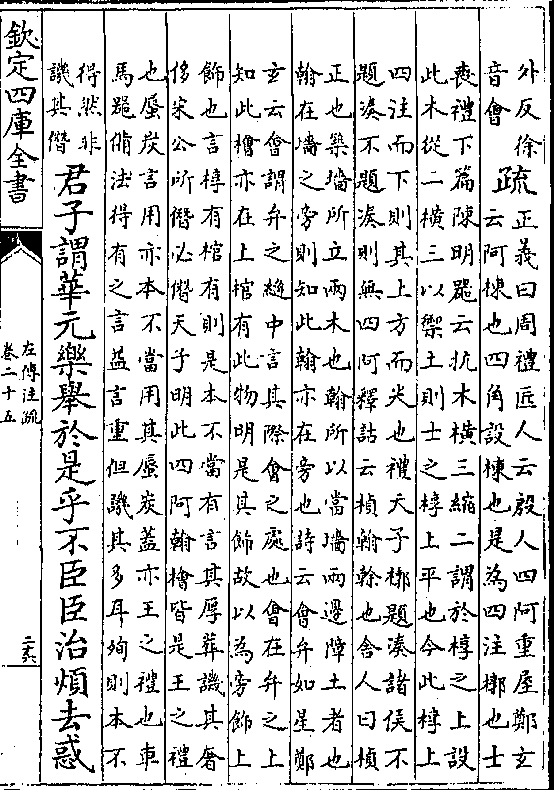 外反徐
音會
疏
正義曰周禮匠人云殷人四阿重屋鄭玄
云阿棟也四角設棟也是為四注槨也士
喪禮下篇陳明器云抗木橫三縮二謂於椁之上設
此木從二橫三以禦土則士之椁上平也今此椁上
四注而下則其上方而尖也禮天子槨題湊諸侯不
題湊不題湊則無四阿釋詁云楨翰榦也舍人曰楨
正也築墻所立兩木也翰所以當墻兩邊障土者也
翰在墻之旁則知此翰亦在旁也詩云會弁如星鄭
玄云會謂弁之縫中言其際會之處也會在弁之上
知此檜亦在上棺有此物明是其飾故以為旁飾上
飾也言椁有棺有則是本不當有言其厚葬譏其奢
侈宋公所僭必僭天子明此四阿翰檜皆是王之禮
也蜃炭言用亦本不當用其蜃炭蓋亦王之禮也車
馬器備法得有之言益言重但譏其多耳殉則本不
得然非
譏其僭
君子謂華元樂舉於是乎不臣臣治煩去惑
欽定四庫全書
左傳注疏
卷二十五
二六